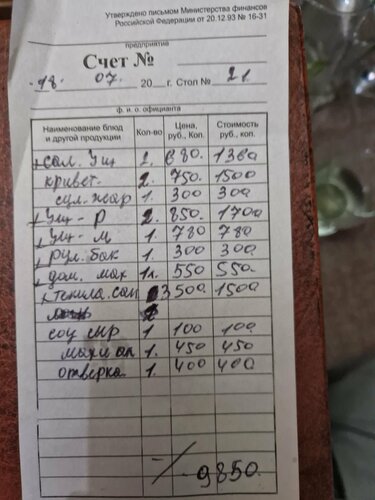 Утверждено письмом Министерства финансов
Российской Федерации от 20.12.93 № 16-31
предприятие
Счет №
18. 07. 20 г. Стол № 21
ф. и. о. официанта
Наименование блюд и другой продукции Кол-во Цена, руб., Коп. Стоимость руб., коп.
сал. Уш 2. 680. 1360
кривет. 2. 750. 1500
сул. жар 1. 300 300
Уш - Р 2. 850. 1700
Уш - М 1. 780 780
рул. бак 1. 300 300
дом. мах 1л. 550 550.
текила. сам 3 500. 1500
соц сыр 1 100 100
1. 450 450
отверка 1. 400 400
9850.